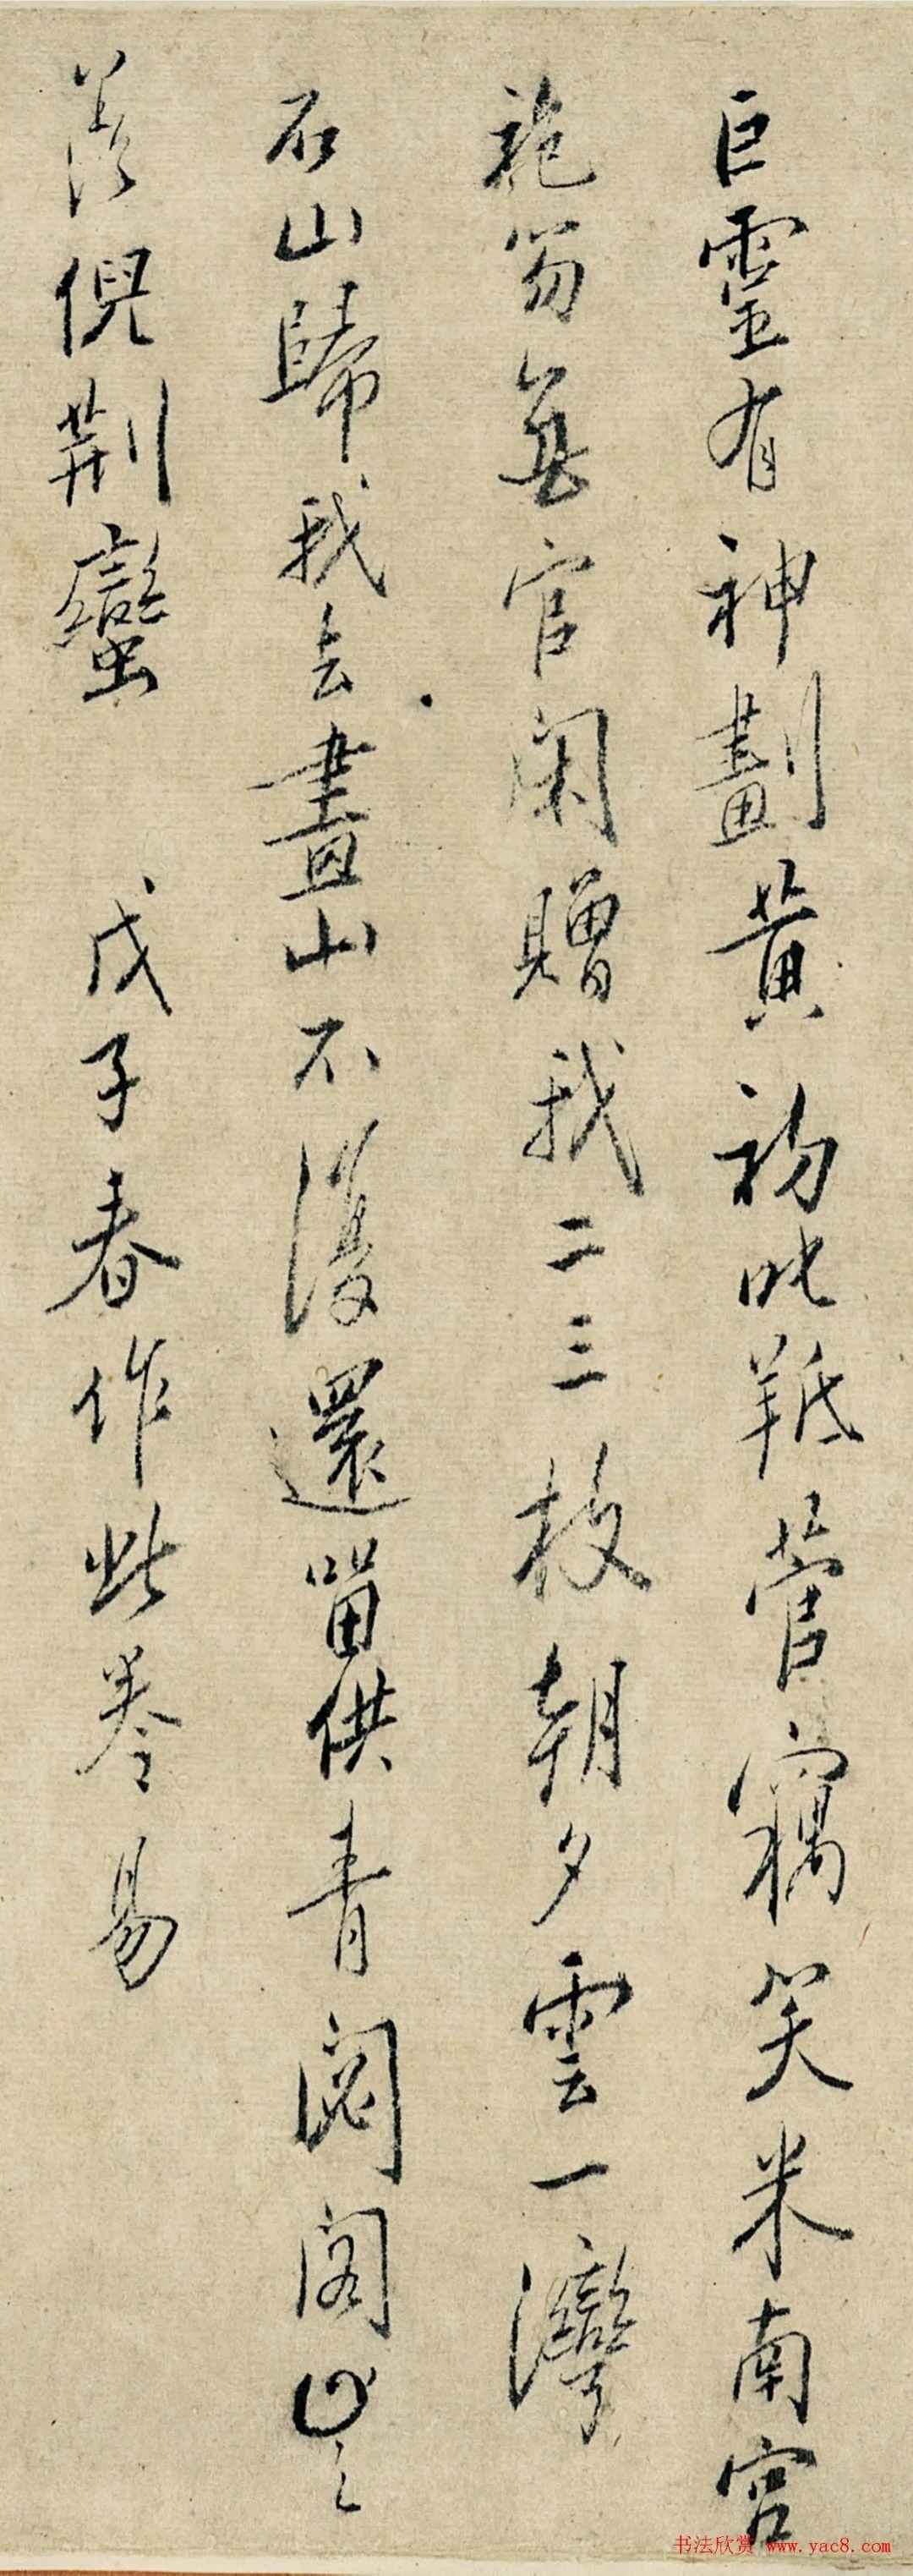 巨靈有神劃黃初叱羝菅窩笑米南宮
袍笏無官閑贈我二三枝朝夕雲一灣
石山歸我去畫山不復還留供青閟閣山之
落倪荆蠻 戊子春作此卷易
书法欣赏 www.yac8.com